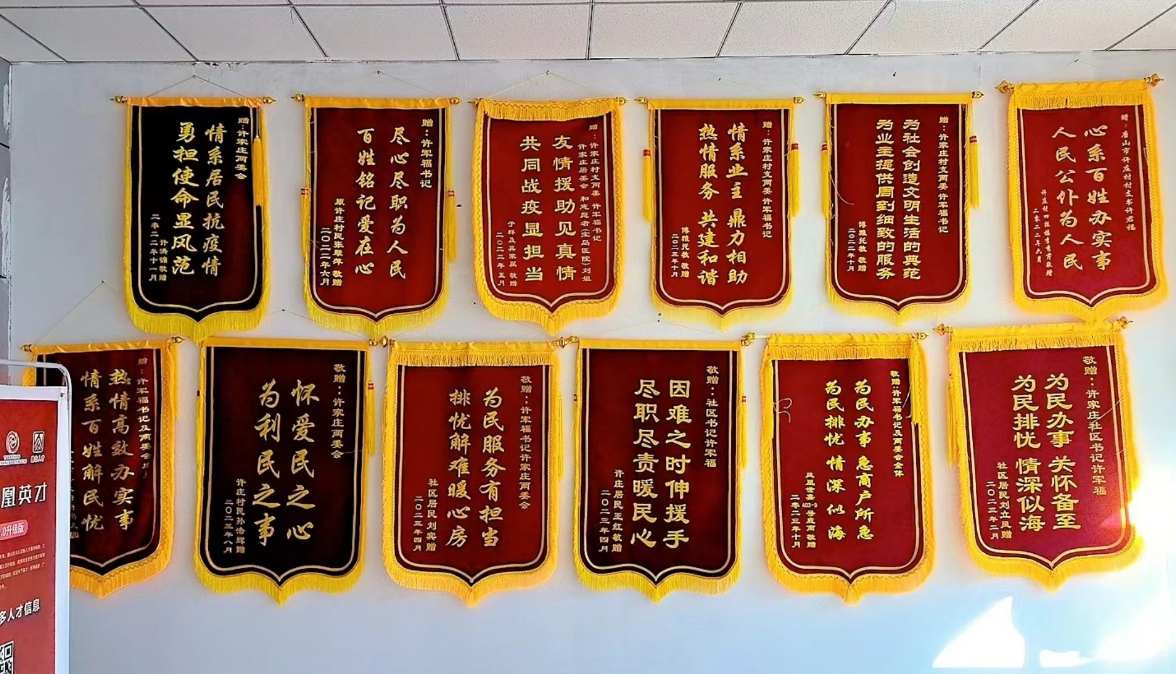 赠：许家庄两委会
情系居民抗疫情
勇担使命显风范
敬赠
二零二二年十一月
赠：许军福书记
尽心尽职为人民
百姓铭记爱在心
原许庄村民张翠萍 敬赠
二〇二二年六月
赠：许家庄村支两委 许军福书记
许家庄居委会 和志愿者(宝岛医院)刘姐
友情援助见真情
共同战疫显担当
敬赠
二〇二二年五月
赠：许家庄村支两委 许军福书记
情系业主 鼎力相助
热情服务 共建和谐
博雅苑敬 敬赠
二〇二三年十月
赠：许家庄村支两委 许军福书记
为社会创造文明生活的典范
为业主提供周到细致的服务
博雅苑敬 敬赠
二〇二二年十月
赠：唐山市许庄村村支书许君福
心系百姓办实事
人民公仆为人民
二零二二年六月
赠：许军福书记及两委会
热情高效办实事
情系百姓解民忧
敬赠：许家庄两委会
怀爱民之心
为利民之事
许庄村民孙洁 敬赠
二〇二三年八月
敬赠：许军福书记许家庄两委会
为民服务有担当
排忧解难暖心房
社区居民刘宾赠
二〇二三年四月
敬赠：社区书记许军福
因难之时伸援手
尽职尽责暖民心
许庄居民王红敬赠
二〇二三年四月
敬赠：许军福书记及两委会全体
为民办事 急商户所急
为民排忧 情深似海
凤凰世嘉 403-9 敬赠
二零二三年十月
敬赠：许家庄社区书记许军福
为民办事 关怀备至
为民排忧 情深似海
社区居民刘立凤赠
二〇二三年二月
凰英才
0升级版
多人才信息